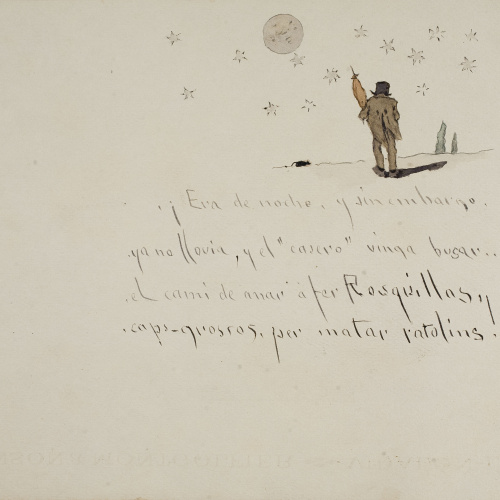 ¡Era de noche, y sin embargo,
ya no llovia, y el "casero" vinga busar..
el camí de anar á fer Rosquillas y
caps-grosos, per matar ratolins.